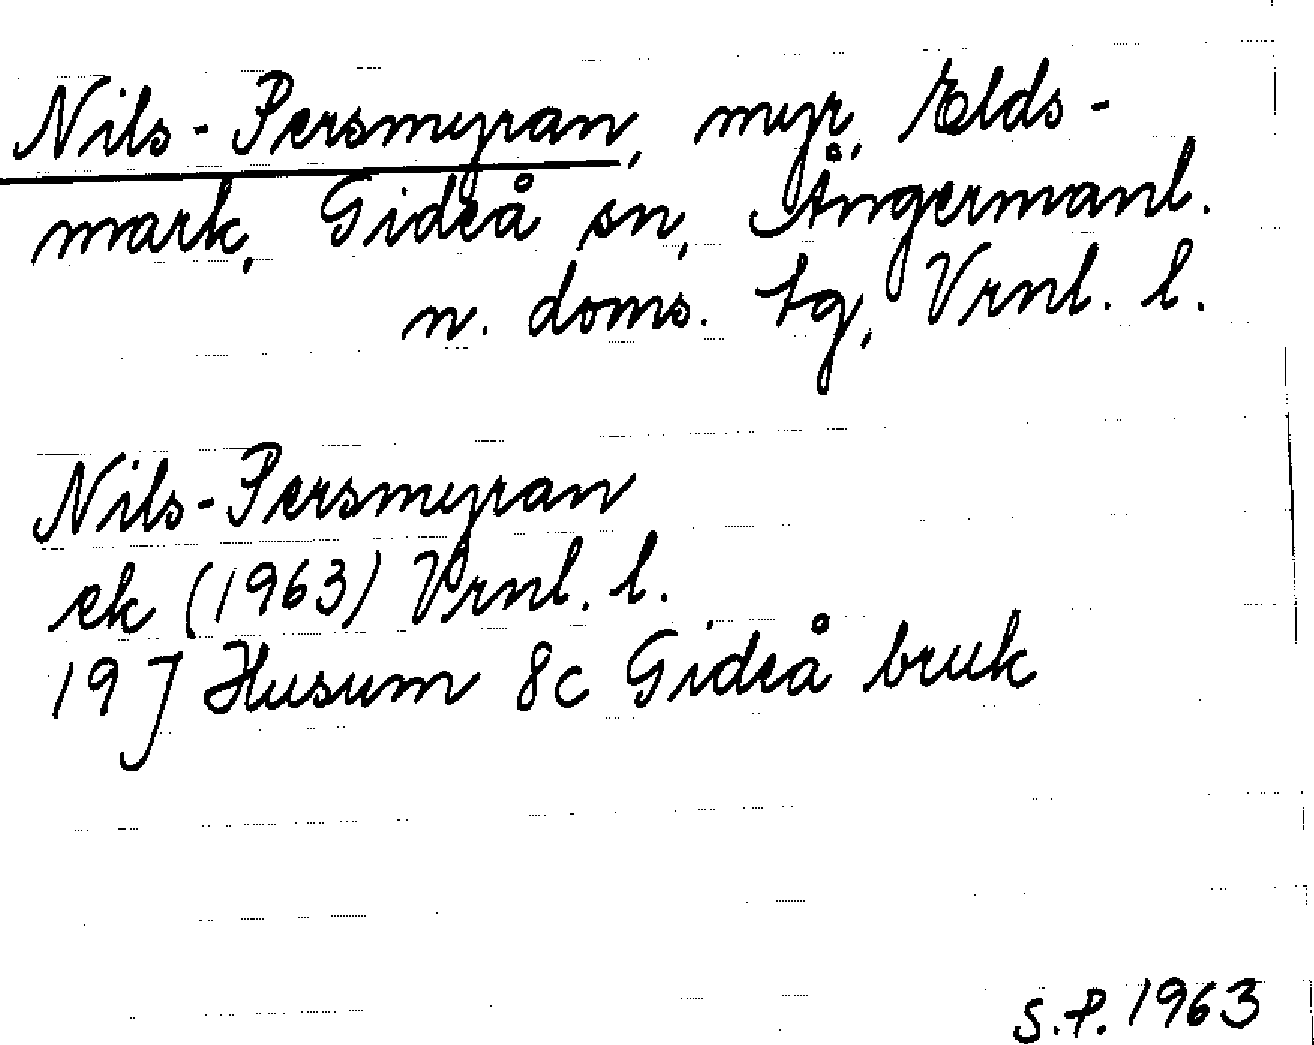 Nils-Persmyran, myr, Elds-
mark, Gideå sn, Ångermanl.
n. doms. tg, Vrnl. l.
Nils-Persmyran
ek (1963) Vrnl. l.
19J Husum 8c Gideå bruk
S.P. 1963